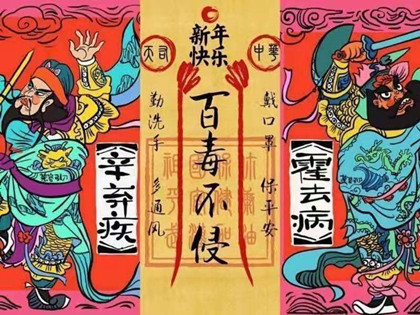 新年
快乐
中华
戴口罩 保平安
百毒不侵
勤洗手 多通风
《辛弃疾》
《霍去病》